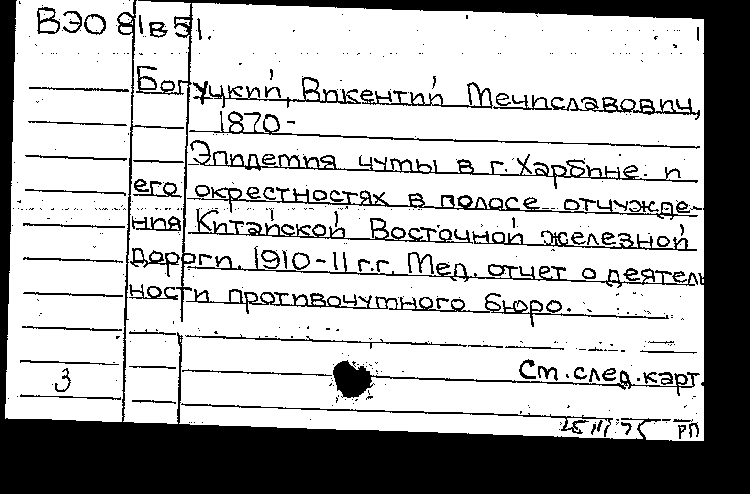 ВЭО 81в51.
Богуцкий, Викентий Мечиславович,
1870-
Эпидемия чумы в г. Харбине и
его окрестностях в полосе отчужде-
ния Китайской Восточной железной
дороги. 1910-11 г.г. Мед. отчет о деятель
ности противочумного бюро.
См. след. карт.
3
РП